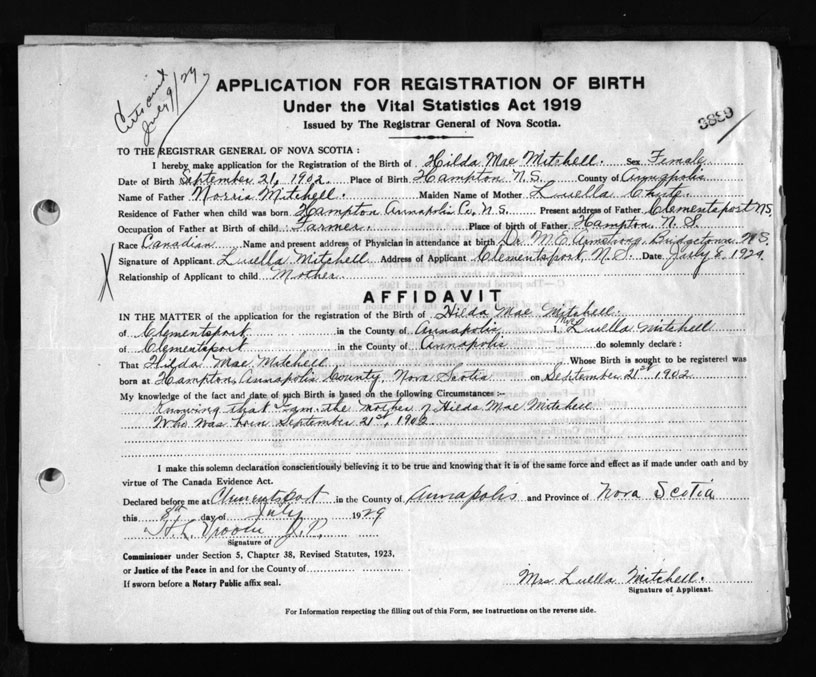 Cert. sent
July 9/29
APPLICATION FOR REGISTRATION OF BIRTH
Under the Vital Statistics Act 1919
Issued by The Registrar General of Nova Scotia.
TO THE REGISTRAR GENERAL OF NOVA SCOTIA :
I hereby make application for the Registration of the Birth of Hilda Mae Mitchell. Sex Female
Date of Birth September 21, 1902. Place of Birth Hampton N.S. County of Annapolis
Name of Father Norris Mitchell. Maiden Name of Mother Luella Chute.
Residence of Father when child was born Hampton Annapolis Co, N.S. Present address of Father Clementsport NS.
Occupation of Father at Birth of child Farmer. Place of birth of Father Hampton N. S.
Race Canadian Name and present address of Physician in attendance at birth Dr. M.E. Armstrong Bridgetown N.S.
Signature of Applicant Luella Mitchell Address of Applicant Clementsport N.S. Date July 8, 1929.
Relationship of Applicant to child Mother
AFFIDAVIT
IN THE MATTER of the application for the registration of the Birth of Hilda Mae Mitchell.
of Clementsport in the County of Annapolis I, Mrs Luella Mitchell
of Clementsport in the County of Annapolis do solemnly declare :
That Hilda Mae Mitchell Whose Birth is sought to be registered was
born at Hampton, Annapolis County, Nova Scotia on September 21st 1902
My knowledge of the fact and date of such Birth is based on the following Circumstances :—
Knowing that I am the Mother of Hilda Mae Mitchell
Who was born September 21st, 1902
I make this solemn declaration conscientiously believing it to be true and knowing that it is of the same force and effect as if made under oath and by
virtue of The Canada Evidence Act.
Declared before me at Clementsport in the County of Annapolis and Province of Nova Scotia
this 8th day of July 1929
Vroom J.P.
Signature of
Commissioner under Section 5, Chapter 38, Revised Statutes, 1923,
or Justice of the Peace in and for the County of
If sworn before a Notary Public affix seal.
Mrs Luella Mitchell.
Signature of Applicant.
For Information respecting the filling out of this Form, see Instructions on the reverse side.